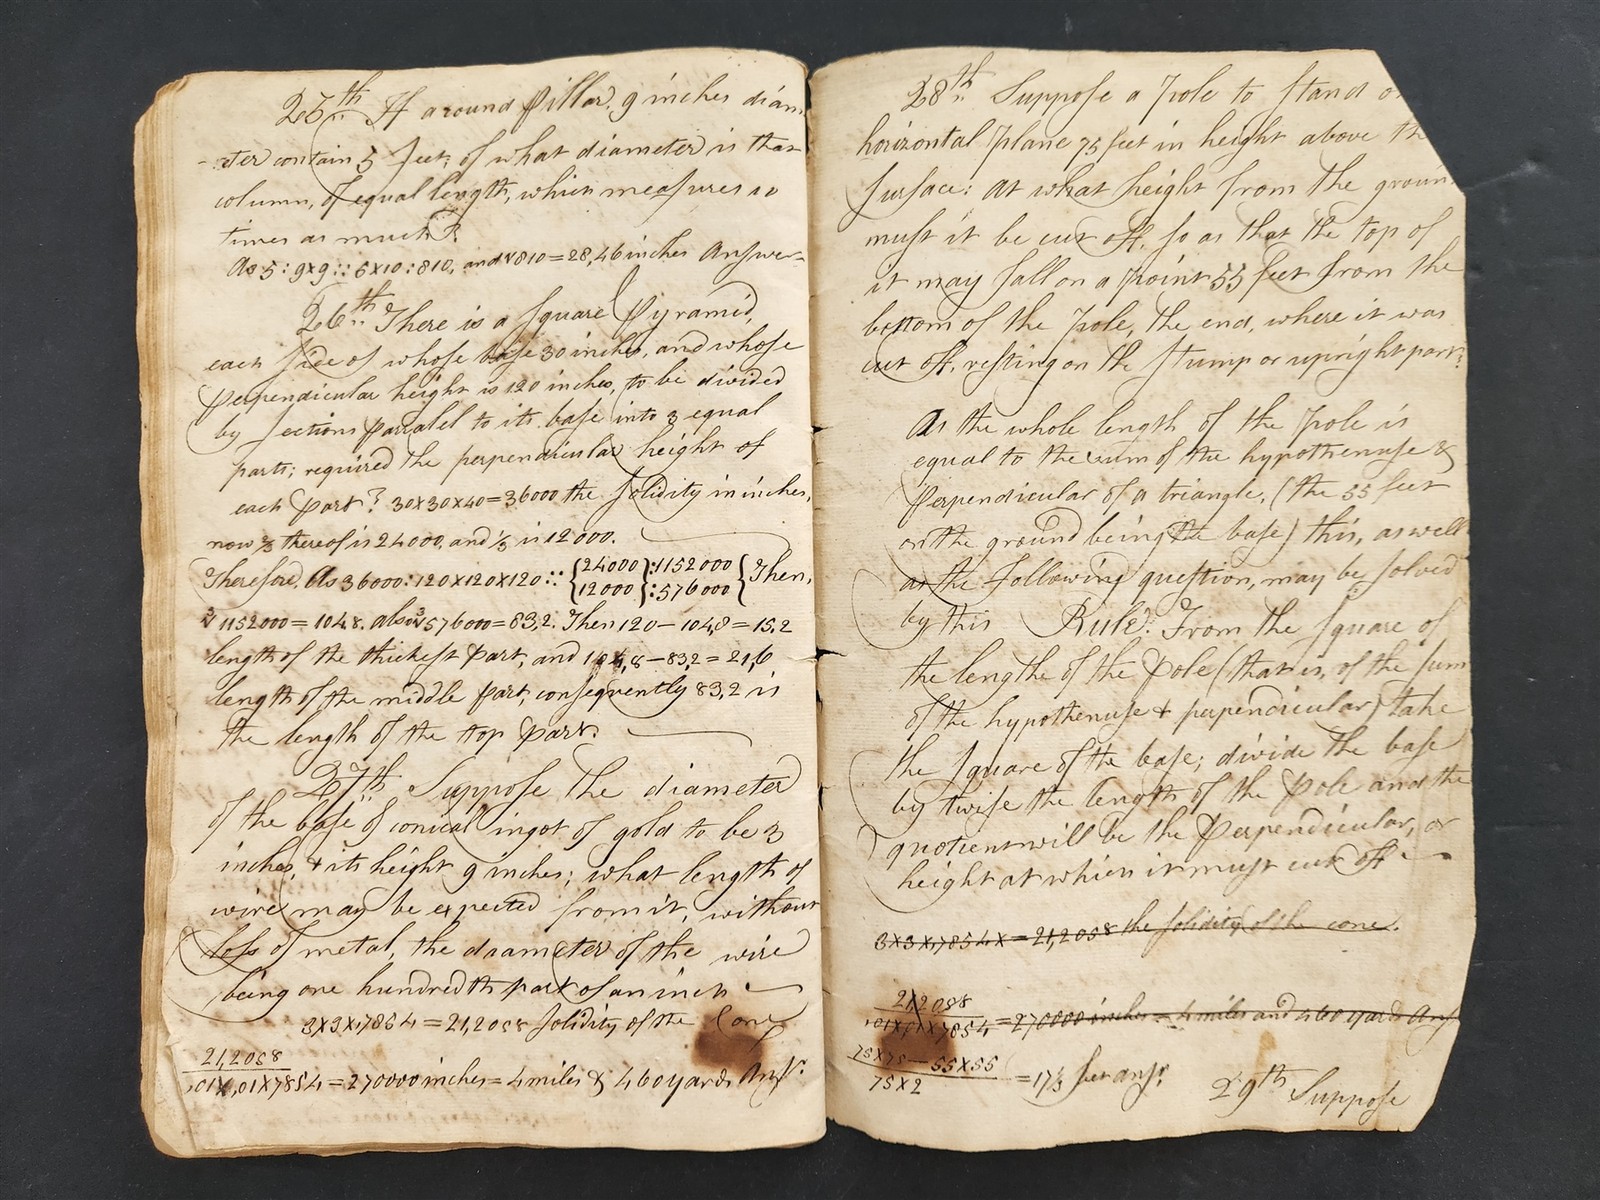 25th If a round Pillar, 9 inches diam
-eter contain 5 feet, of what diameter is that
column, of equal length, which measures 10
times as much?
As 5 : 9x9 :: 5x10 : 810, and √810 = 28,46 inches Answer
26th There is a square Pyramid,
each side of whose base 30 inches, and whose
perpendicular height is 120 inches, to be divided
by sections parralel to its base into 3 equal
parts; required the perpendicular height of
each part? 30x30x40=36000 the solidity in inches,
now ⅔ thereof is 24000, and ⅓ is 12000.
Therefore, As 36000 : 120x120x120 :: {24000 12000} : 1152000 : 576000 { Then,
∛1152000 = 104.8. also ∛576000 = 83,2. Then 120 - 104,8 = 15,2
length of the thickest part, and 104,8 - 83,2 = 21,6
length of the middle part, consequently 83,2 is
the length of the top part.
27th Suppose the diameter
of the base of conical ingot of gold to be 3
inches, & its height 9 inches; what length of
wire may be expected from it, without
loss of metal, the diameter of the wire
being one hundredth part of an inch
3x3x,7854 = 21,2058 solidity of the Cone
21,2058
,01x,01x7854 = 270000 inches = 4 miles & 460 yards Ansr.
28th Suppose a pole to stand on
horizontal plane 75 feet in height above the
surface: at what height from the groun
must it be cut off, so as that the top of
it may fall on a point 55 feet from the
bottom of the pole, the end, where it was
cut off, resting on the stump or upright part?
As the whole length of the pole is
equal to the sum of the hypothenuse &
perpendicular of a triangle, (the 55 feet
on the ground being the base) this, as well
as the following question, may be solved
by this Rule. From the square of
the lengthe of the pole (that is, of the sum
of the hypothenuse & perpendicular) take
the square of the base; divide the base
by twise the length of the pole and the
quotient will be the perpendicular, or
height at which it must cut off
3x3x,7854x = 21,2058 the solidity of the cone.
21,2058
,01x,01x7854 = 270000 inches = 4 miles and 460 yards Ans
75x75 - 55x55
75x2 = 17⅓ feet ansr.
29th Suppose